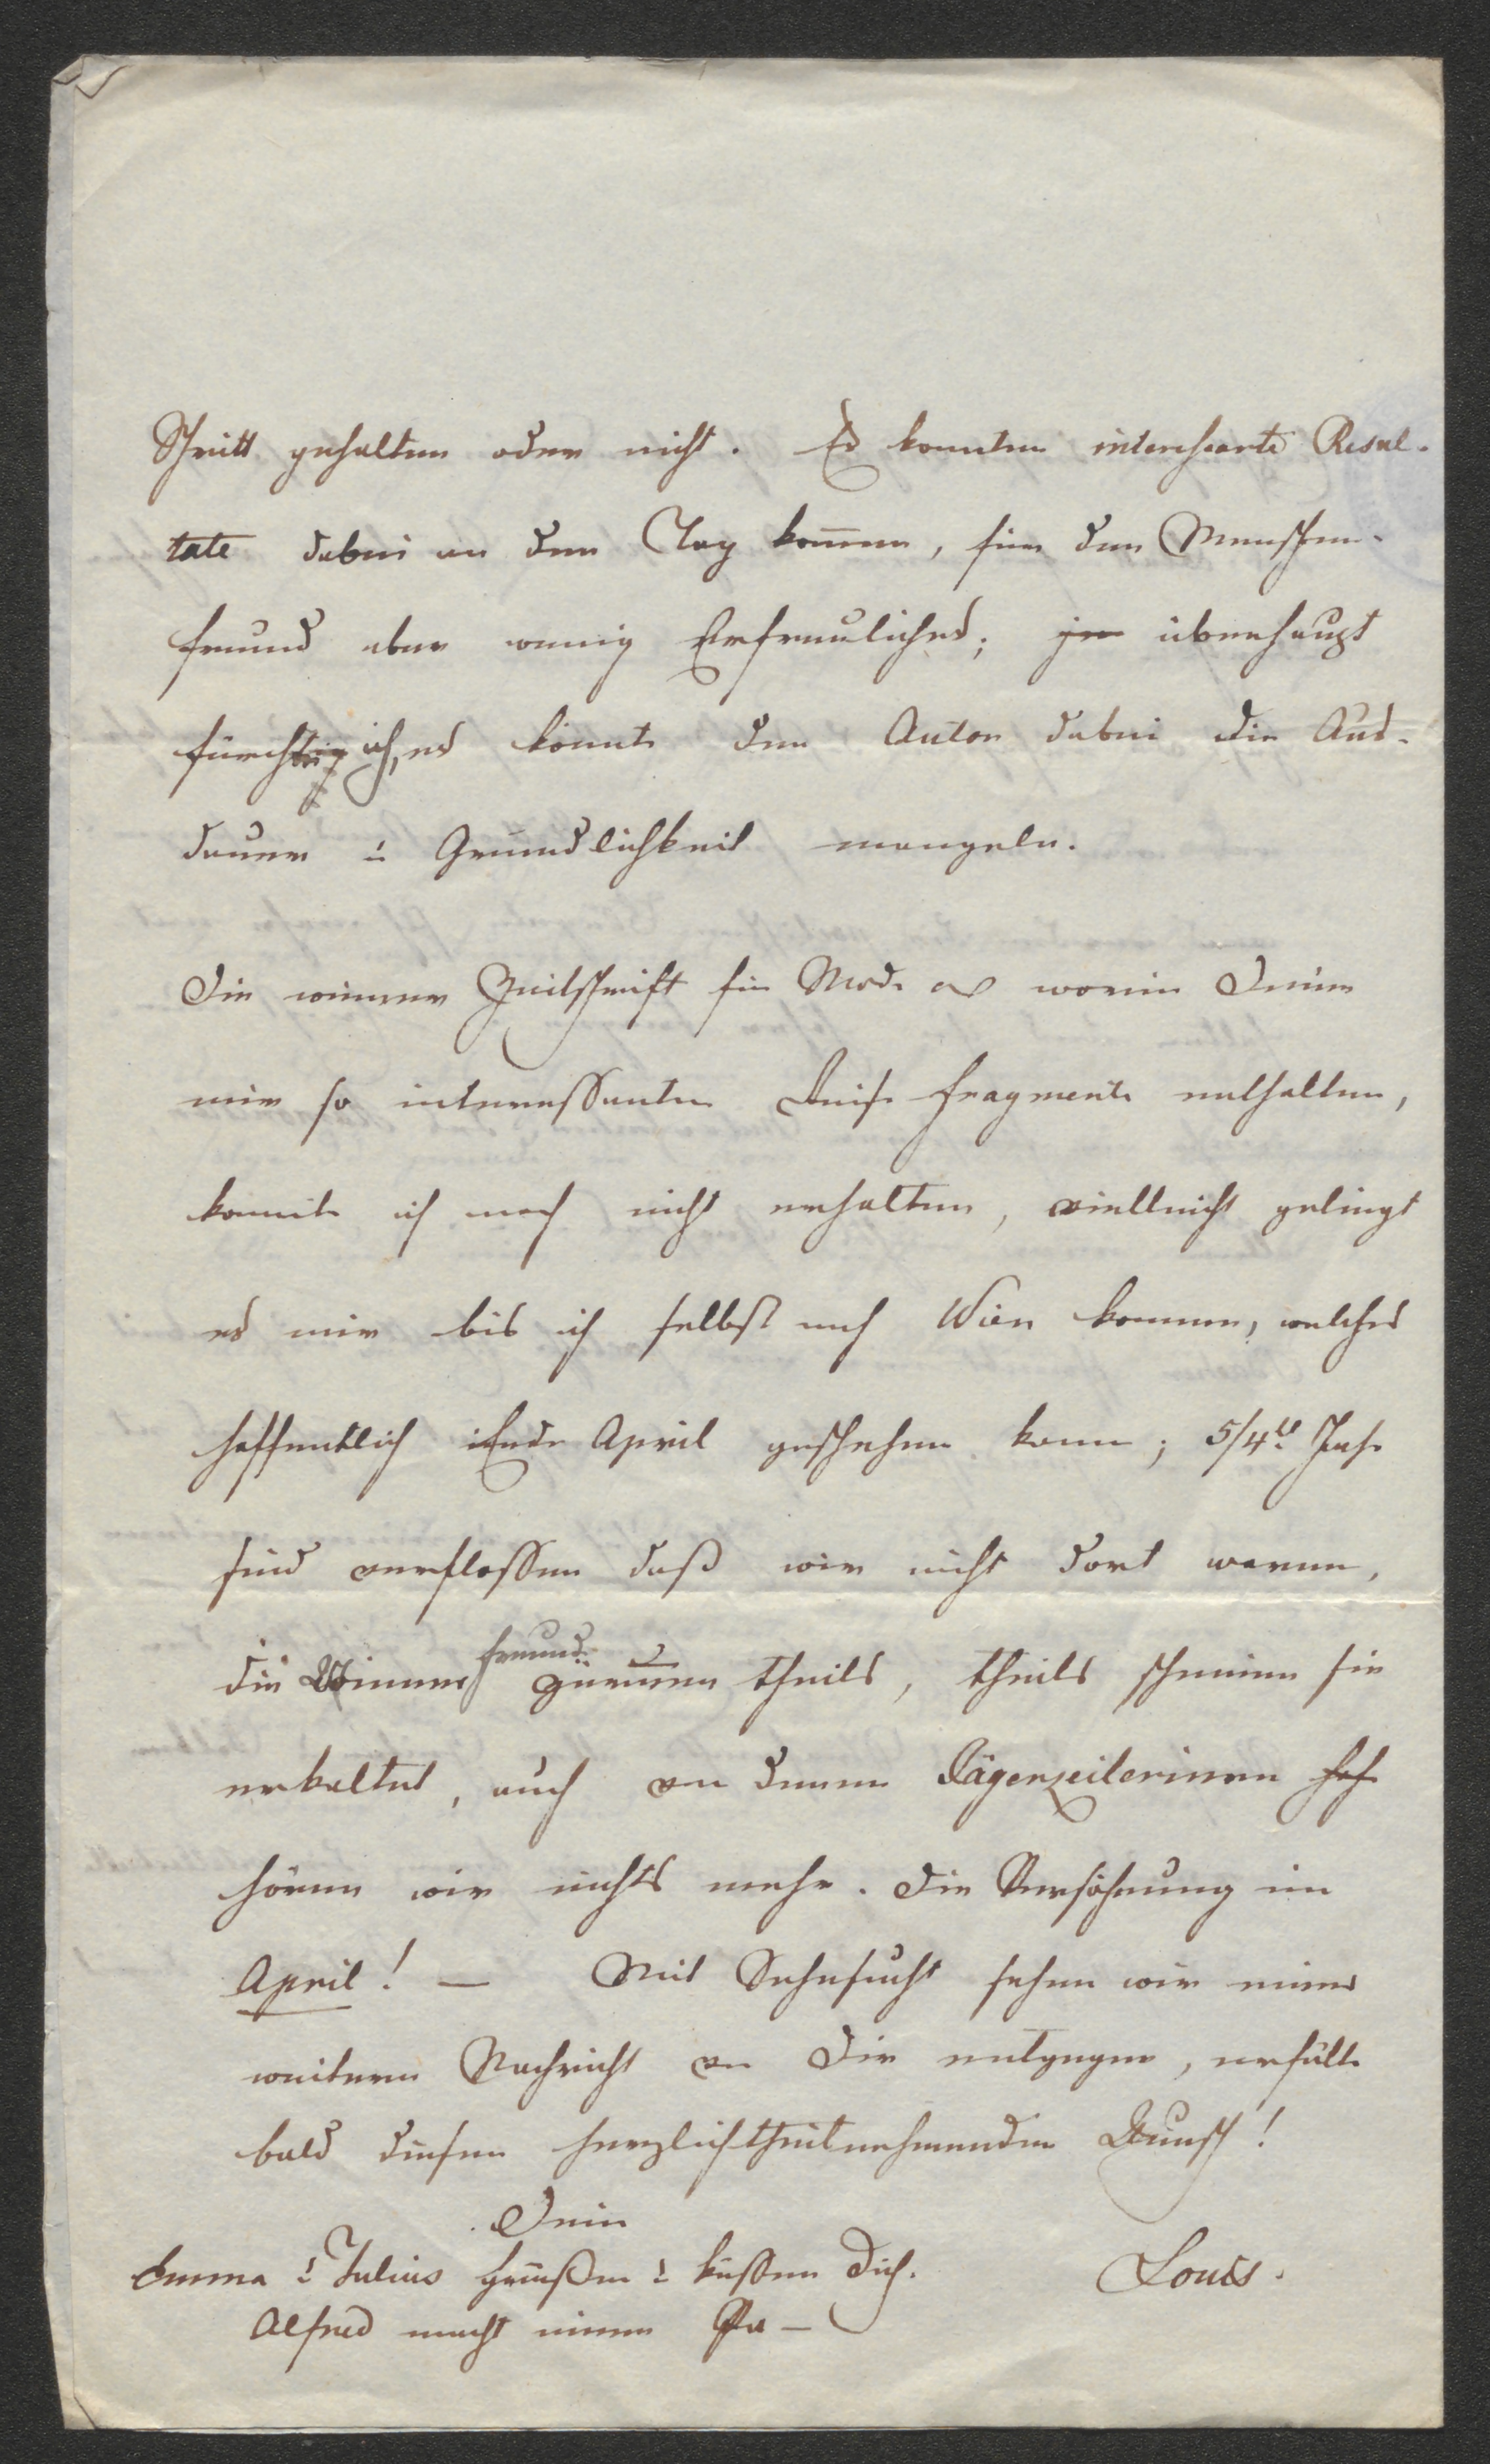 Schritt gehalten oder nicht. Es konnten interessante Resul-
tate dabei an den Tag kom̅en, für den Menschen-
freund aber wenig Erfreuliches; ja überhaupt
fürcht ich, es könnte dem Autor dabei die Aus-
dauer u Gründlichkeit mangeln.
Die wiener Zeitschrift für Mode etc worin Deine
mir so interessanten Reise fragmente enthalten,
konnte ich noch nicht erhalten, vielleicht gelingt
es mir bis ich selbst nach Wien komme, welches
hoffentlich Ende April geschehen kann; 5/4tl Jahr
sind verflossen daß wir nicht dort waren,
freunde
die Wiener zürnen theils, theils scheinen sie
erkaltet, auch von denen Jägerzeilerinen
hören wir nichts mehr. Die Versöhnung im
April! — Mit Sehnsucht sehen wir einer
weitern Nachricht von Dir entgegen, erfülle
bald diesen herzlichtheilnehmenden Wunsch!
Dein
Emma u Julius grüßen u küssen Dich.
Louis.
Alfred macht einen Pa —